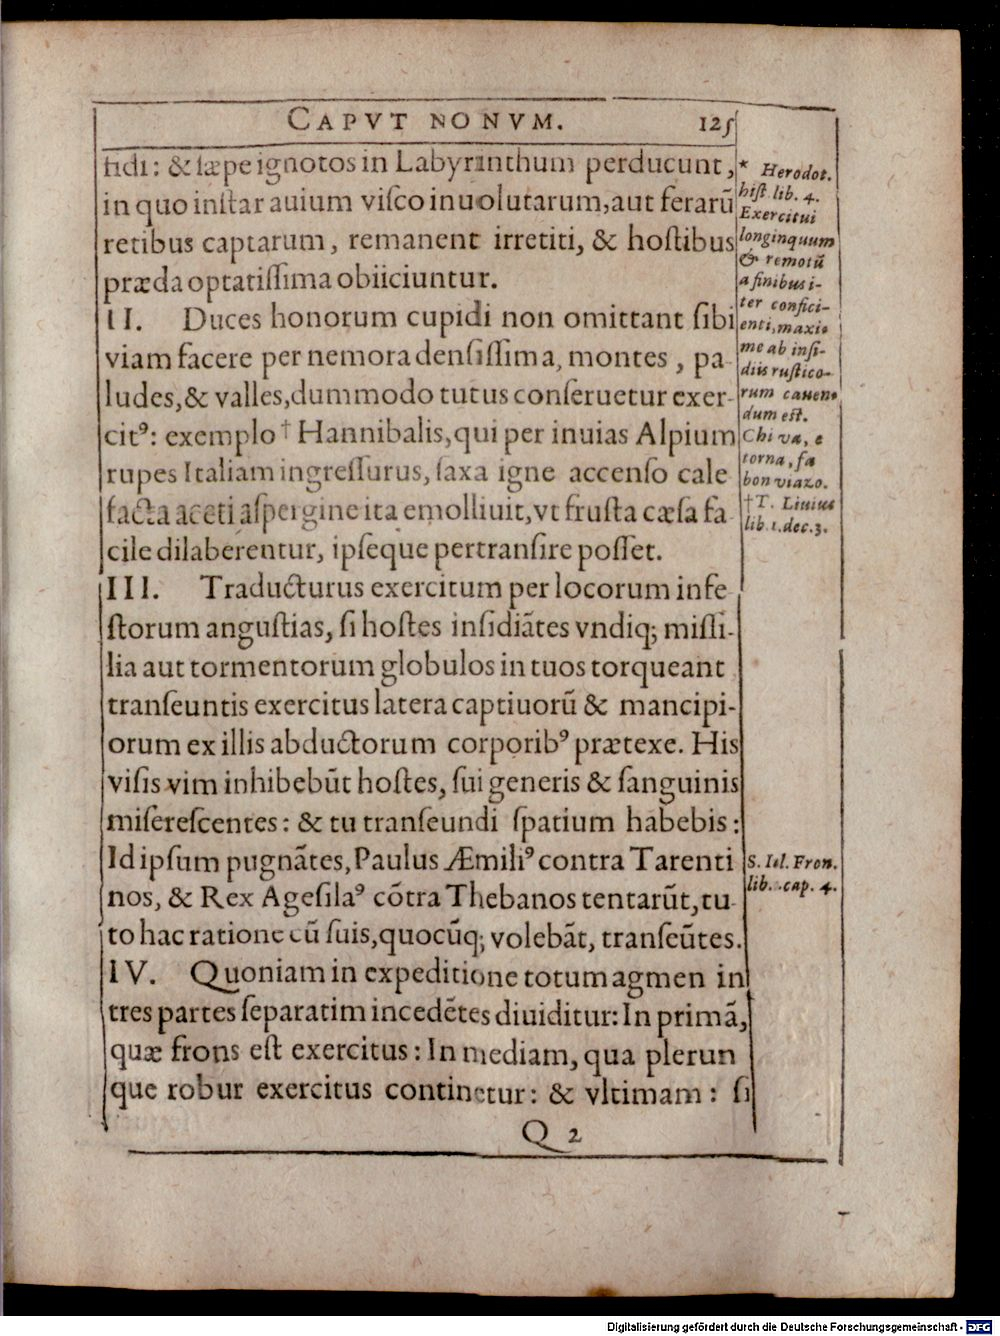 CAPVT NONVM. 125
tidi: & ſæpe ignotos in Labyrinthum perducunt,
in quo inſtar auium viſco inuolutarum, aut ferarũ
retibus captarum, remanent irretiti, & hoſtibus
præda optatiſſima obiiciuntur.
II. Duces honorum cupidi non omittant ſibi
viam facere per nemora denſiſſima, montes, pa-
ludes, & valles, dummodo tutus conſeruetur exer-
citꝰ: exemplo † Hannibalis, qui per inuias Alpium
rupes Italiam ingreſſurus, ſaxa igne accenſo cale
facta aceti aſpergine ita emolliuit, vt fruſta cæſa fa-
cile dilaberentur, ipſeque pertranſire poſſet.
III. Traducturus exercitum per locorum infe-
ſtorum anguſtias, ſi hoſtes inſidiãtes vndiq; miſſi-
lia aut tormentorum globulos in tuos torqueant
tranſeuntis exercitus latera captiuorũ & mancipi-
orum ex illis abductorum corporibꝰ prætexe. His
viſis vim inhibebũt hoſtes, ſui generis & ſanguinis
miſereſcentes: & tu tranſeundi ſpatium habebis:
Id ipſum pugnãtes, Paulus Æmiliꝰ contra Tarenti
nos, & Rex Ageſilaꝰ cõtra Thebanos tentarũt, tu-
to hac ratione cũ ſuis, quocũq; volebãt, tranſeũtes.
IV. Quoniam in expeditione totum agmen in
tres partes ſeparatim incedẽtes diuiditur: In primã,
quæ frons eſt exercitus: In mediam, qua plerun
que robur exercitus continetur: & vltimam: ſi
Q 2
* Herodot.
hiſt lib. 4.
Exercitui
longinquum
& remotũ
a finibus i-
ter confici-
enti, maxi-
me ab inſi-
diis ruſtico-
rum cauen-
dum eſt.
Chi va, e
torna, fa
bon viazo.
† T. Liuius
lib. 1. dec. 3.
S. Iul. Fron.
lib. cap. 4.
Digitalisierung gefördert durch die Deutsche Forschungsgemeinschaft - DFG